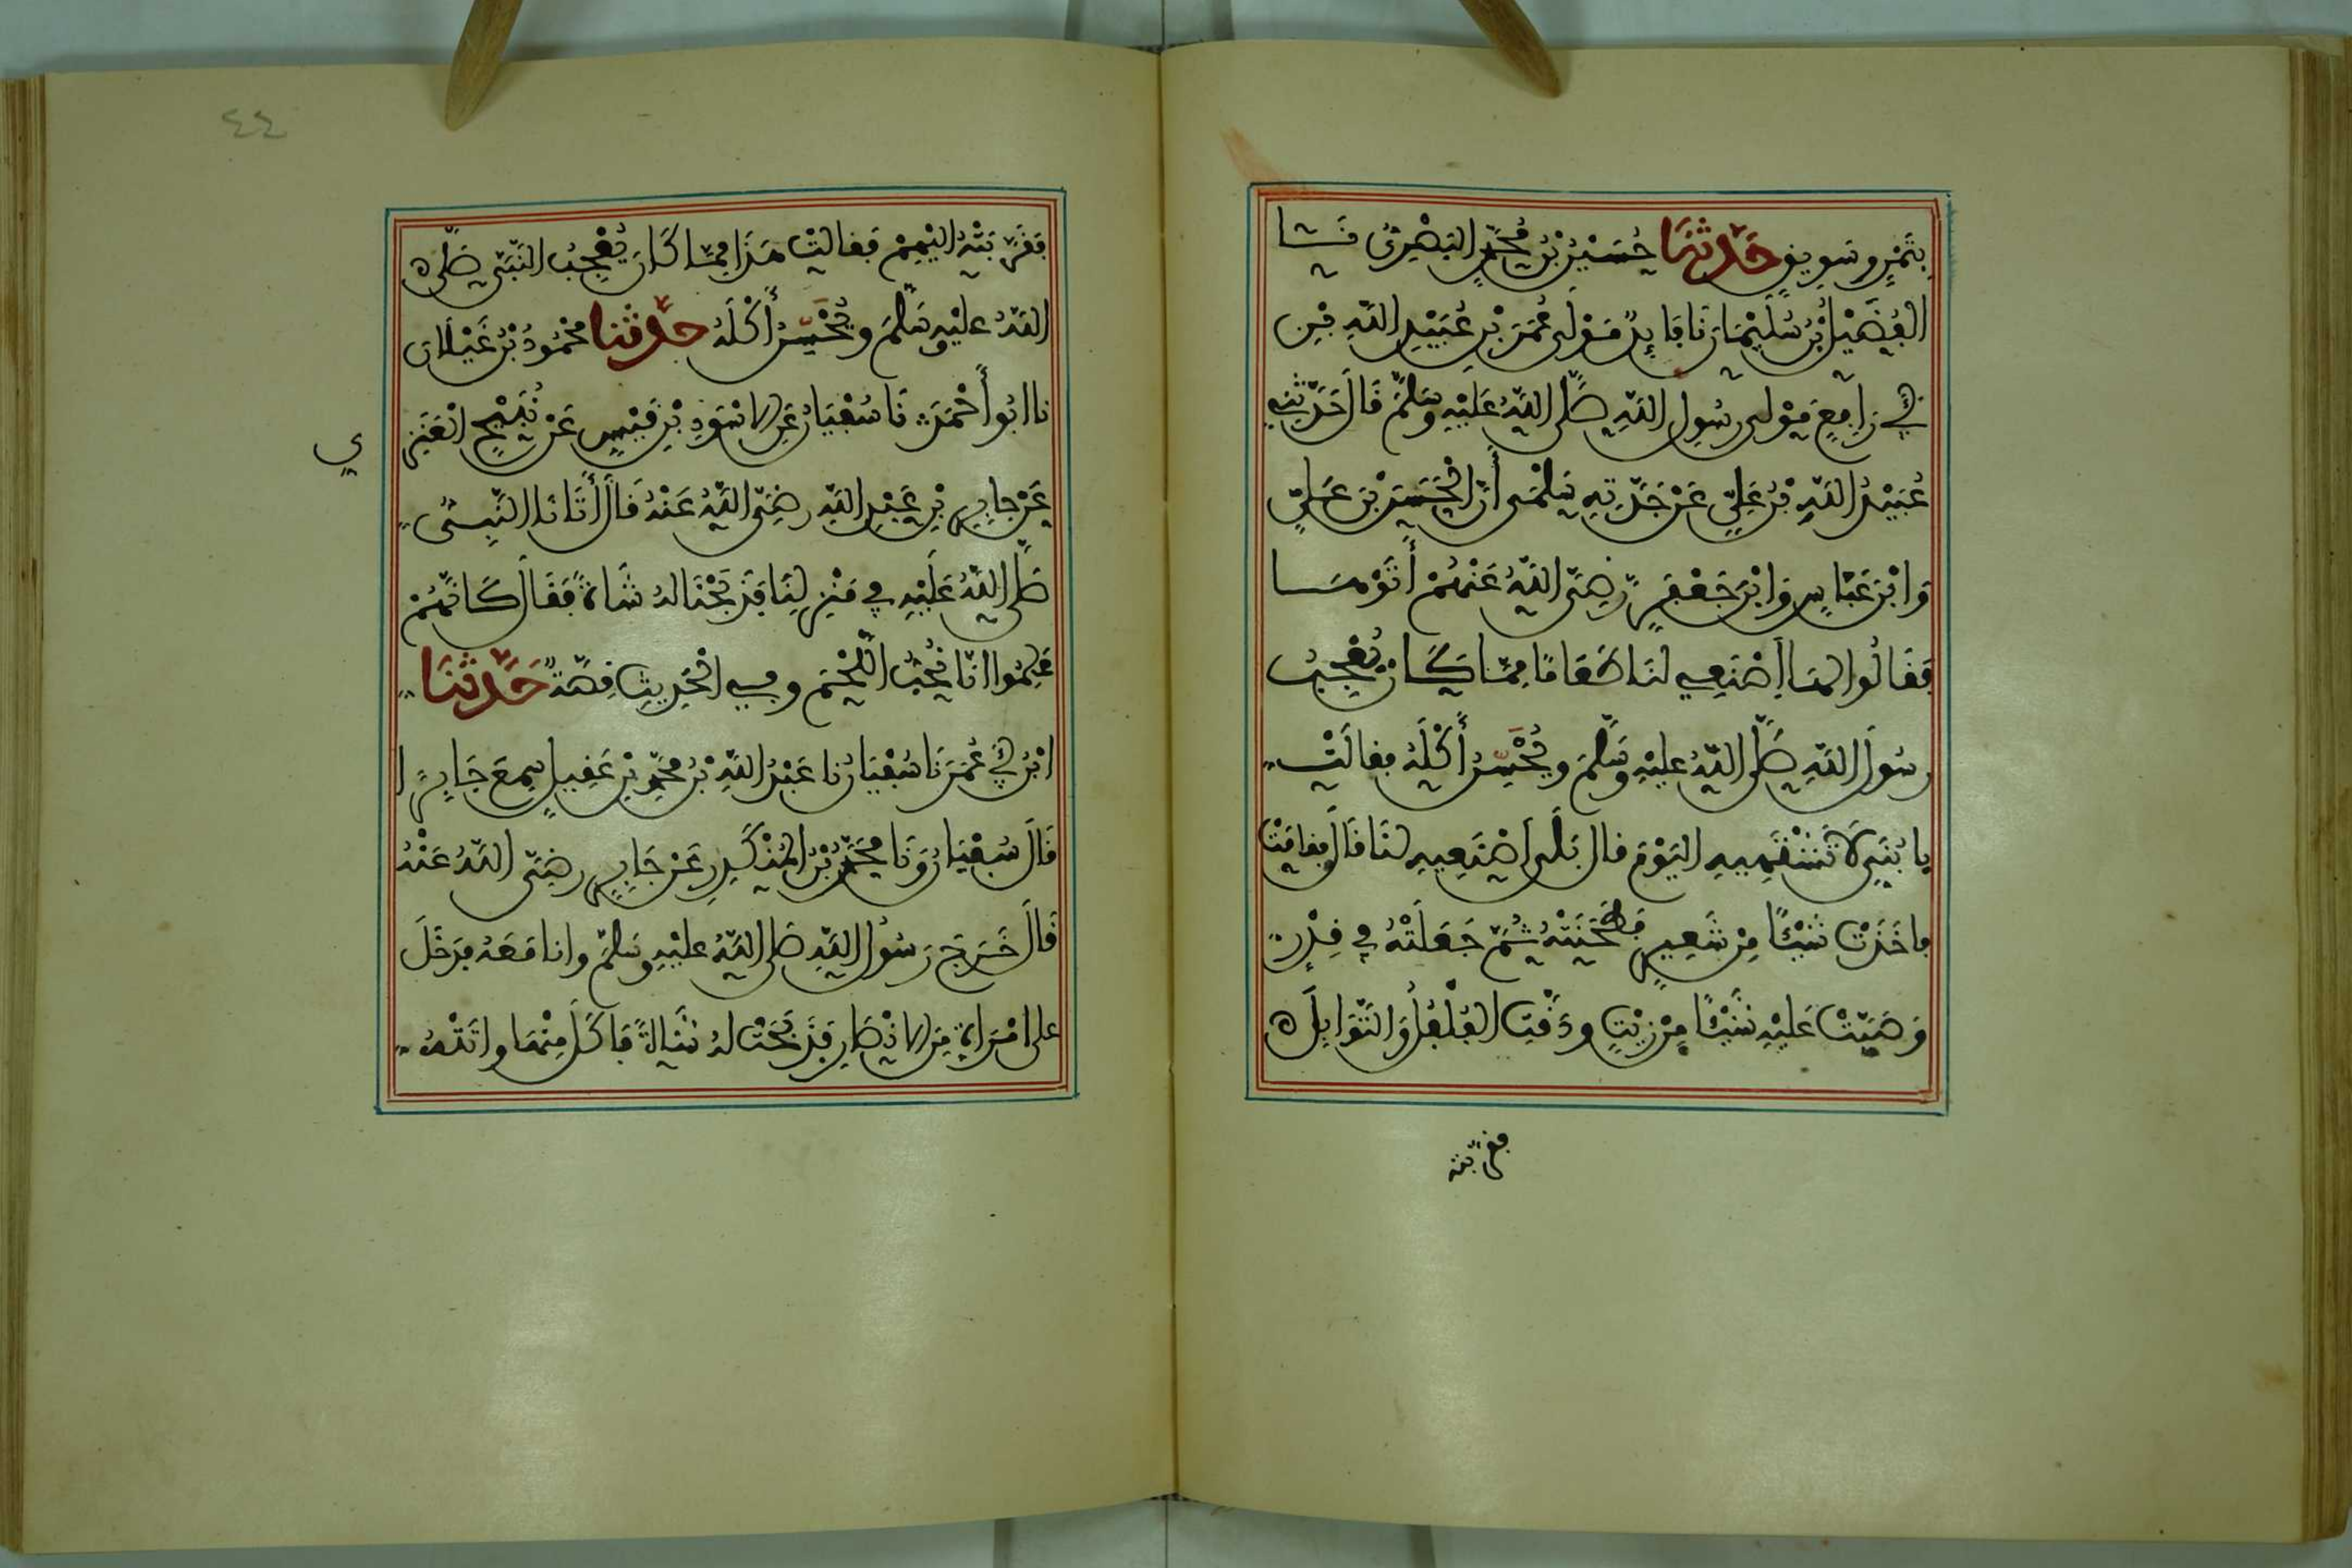 بِتَمْرٍ وسَوِيقٍ حَدَّثنَا حُسَيْنُ بْنُ مُحَمَّدٍ البَصْرِيُّ نَا
الفُضَيْلُ بْنُ سُلَيْمَانَ نَا فَائِدٌ مَوْلَى عُمَرَ بْنِ عُبَيْدِ اللَّهِ بْنِ
أبي رَافِعٍ مَوْلى رسُولِ اللَّهِ صَلَّى اللَّهُ عَلَيْهِ وسَلَّمَ قَالَ حَدَّثَنِي
عُبَيْدُ اللَّهِ بْنُ عَلِيٍّ عَنْ جَدَّتِهِ سَلْمَى أَنَّ الْحَسَنَ بْنَ عَلِيٍّ
وَابْنَ عَبَّاسٍ وَابْنَ جَعْفَرٍ رَضِيَ اللَّهُ عَنْهُمْ أَتَوْهَا
فَقَالُوا لهَا اصْنَعِي لنَا طَعَامًا مِمَّا كَانَ يُعْجِبُ
رسُولَ اللَّهِ صَلَّى اللَّهُ عليْهِ وسَلَّمَ ويُحْسِنُ أَكْلَهُ فقالَتْ
يا بُنَيَّ لَا تَشْتَهِيهِ اليَوْمَ قال بَلَى اصْنَعِيهِ لنَا قَالَ فقامَتْ
فأخَذَتْ شَيْئًا مِنْ شَعِيرٍ فَطَحَنَتْهُ ثُمَّ جَعَلَتْهُ فِي قِدْرٍ
وَصَبَّتْ عَليْهِ شَيْئًا مِنْ زَيْتٍ ودَقَّتِ الفُلْفُلَ وَالتَّوَابِلَ
فقرّبته
٤٤
فَقَرَّبَتْهُ إليْهِمْ فَقالتْ هَذَا مِمَّا كَانَ يُعْجِبُ النَّبِيَّ صَلَّى
اللَّهُ عليْهِ وسَلَّمَ ويُحْسِنُ أَكْلَهُ حدَّثنا مَحْمُودُ بْنُ غَيْلَانَ
نا أبُو أَحْمَدَ نَا سُفْيَانُ عَنِ الاسْوَدِ بْنِ قَيْسٍ عَنْ نُبَيْحٍ الْعَنَزِ
ي
عَنْ جابِرِ بْنِ عَبْدِ اللَّهِ رضِيَ اللَّهُ عَنْهُ قَالَ أَتَانَا النَّبِيُّ
صَلَّى اللَّهُ عَلَيْهِ فِي مَنْزِلِنَا فَذَبَحْنَا لهُ شَاةً فَقَالَ كَأَنَّهُمْ
عَلِمُوا أنَّا نُحِبُّ اللَّحْمَ وفي الحَدِيثِ قِصَّةٌ حَدَّثنَا
ابْنُ أبي عُمَرَ نَا سُفْيَانُ نا عَبْدُ اللَّهِ بْنُ مُحَمَّدِ بْنِ عَقِيلٍ سمِعَ جَابِرًا
قَالَ سُفْيَانُ وَنَا مُحَمَّدُ بْنُ المُنْكَدِرِ عَنْ جَابِرٍ رضِيَ اللَّهُ عَنْهُ
قَالَ خَرَجَ رَسُولُ اللَّهِ صَلى اللَّهُ عليْهِ وسَلَّمَ وانا مَعَهُ فدَخَلَ
على امْرَأةٍ مِنَ الانْصَارِ فَذَبَحَتْ لهُ شَاةً فَأكَلَ مِنْهَا واتَتْهُ